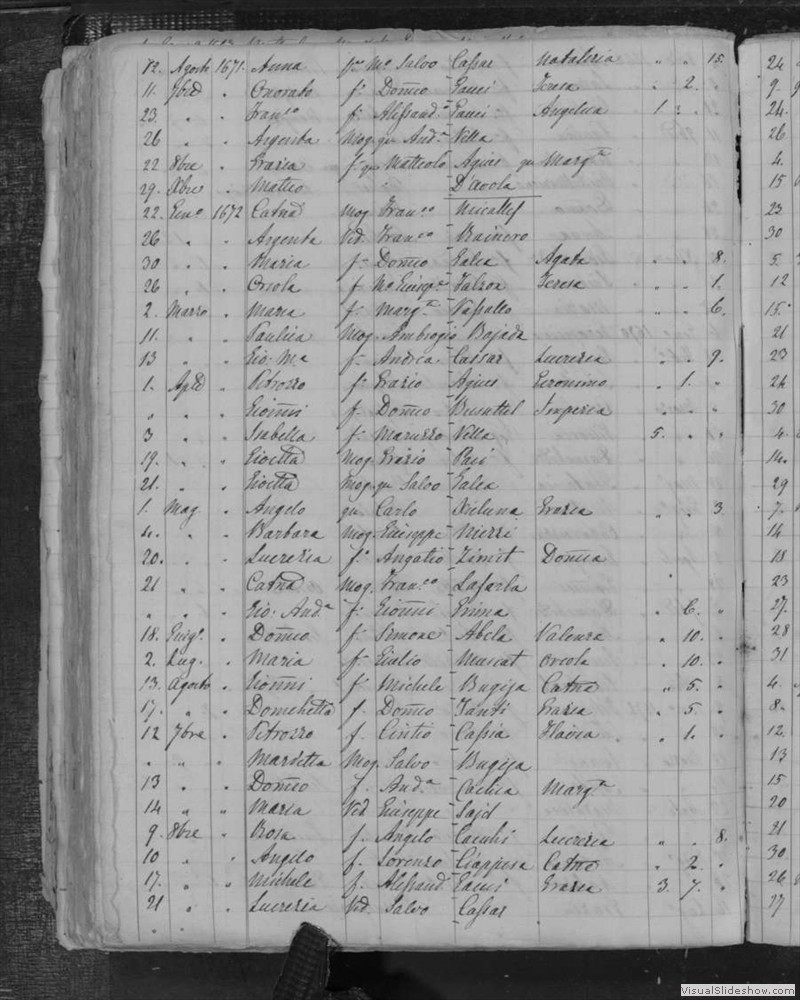 12. Agosto 1671. Anna f. Mo. Salvo Cassar Natalizia " " 15.
11. 7bre " Onorato f. Domco Gauci Teresa " 2. "
23 " " Franco f. Alessando Gauci Angelica 1 2 "
26 " " Argenta Mog. qu Anda Vella
22 8bre " Grazia f. qu Matteolo Agius qu Margta
29. Xbre " Matteo D'Avola
22. Geno 1672 Catna Mog. Franco Micallef
26 " " Argenta Vid. Franco Rainero
30 " " Maria f. Domco Galea Agata " " 8.
26 " " Orsola f. Mo Giusepe Falzon Teresa " " 1.
2. Marzo " Maria f. Margta Vassallo " " 6.
11. " " Paulica Mog. Ambrogio Bajada
13 " " Gio: Ma f. Andrea Cassar Lucrezia " " 9.
1. Aple " Petruzzo f. Grazio Agius Geronima " 1. "
" " " Gioanni f. Domco Busuttil Imperia " " "
3 " " Isabella f. Maruzzo Vella 5. " "
19. " " Gioetta Mog. Grazio Paci
21. " " Gioetta Mog. qu Salvo Galea
1. Mag. " Angelo qu Carlo Xiluna Grazia " " 3
4. " " Barbara Mog. Giuseppe
20. " " Lucrezia f. Angalio Zimit Domca
21 " " Catna Mog. Franco Lafarla
" " " Gio: Anda f. Gioanni Grima " 6. "
18. Giugo " Domco f. Simone Abela Valenza " 10. "
2. Lug. " Maria f. Giulio Muscat Orsola " 10. "
13. Agosto " Gioanni f. Michele Bugija Catna " 5. "
17. " " Domchetta f. Domco Grazia " 5. "
12 7bre " Petruzzo f. Cintio Cassia Flavia " 1. "
" " " Marietta Mog. Salvo Bugija
13 " " Domco f. Anda Cachia Margta
14 " " Maria Vid. Giuseppe Sajd
9. 8bre " Rosa f. Angelo Cauchi Lucrezia " " 8.
10 " " Angelo f. Lorenzo Ciappara Catna " 2. "
17. " " Michele f. Alessand. Gauci Grazia 3. 7. "
21 " " Lucrezia Vid. Salvo Cassar
24
9.
24.
26
4.
15
23
30
5.
12
15.
21
23
24
30
4
14.
29
7.
14
18
23
27.
28
31
4
8.
12.
13
15
20
21
30
26
27
VisualSlideshow.com